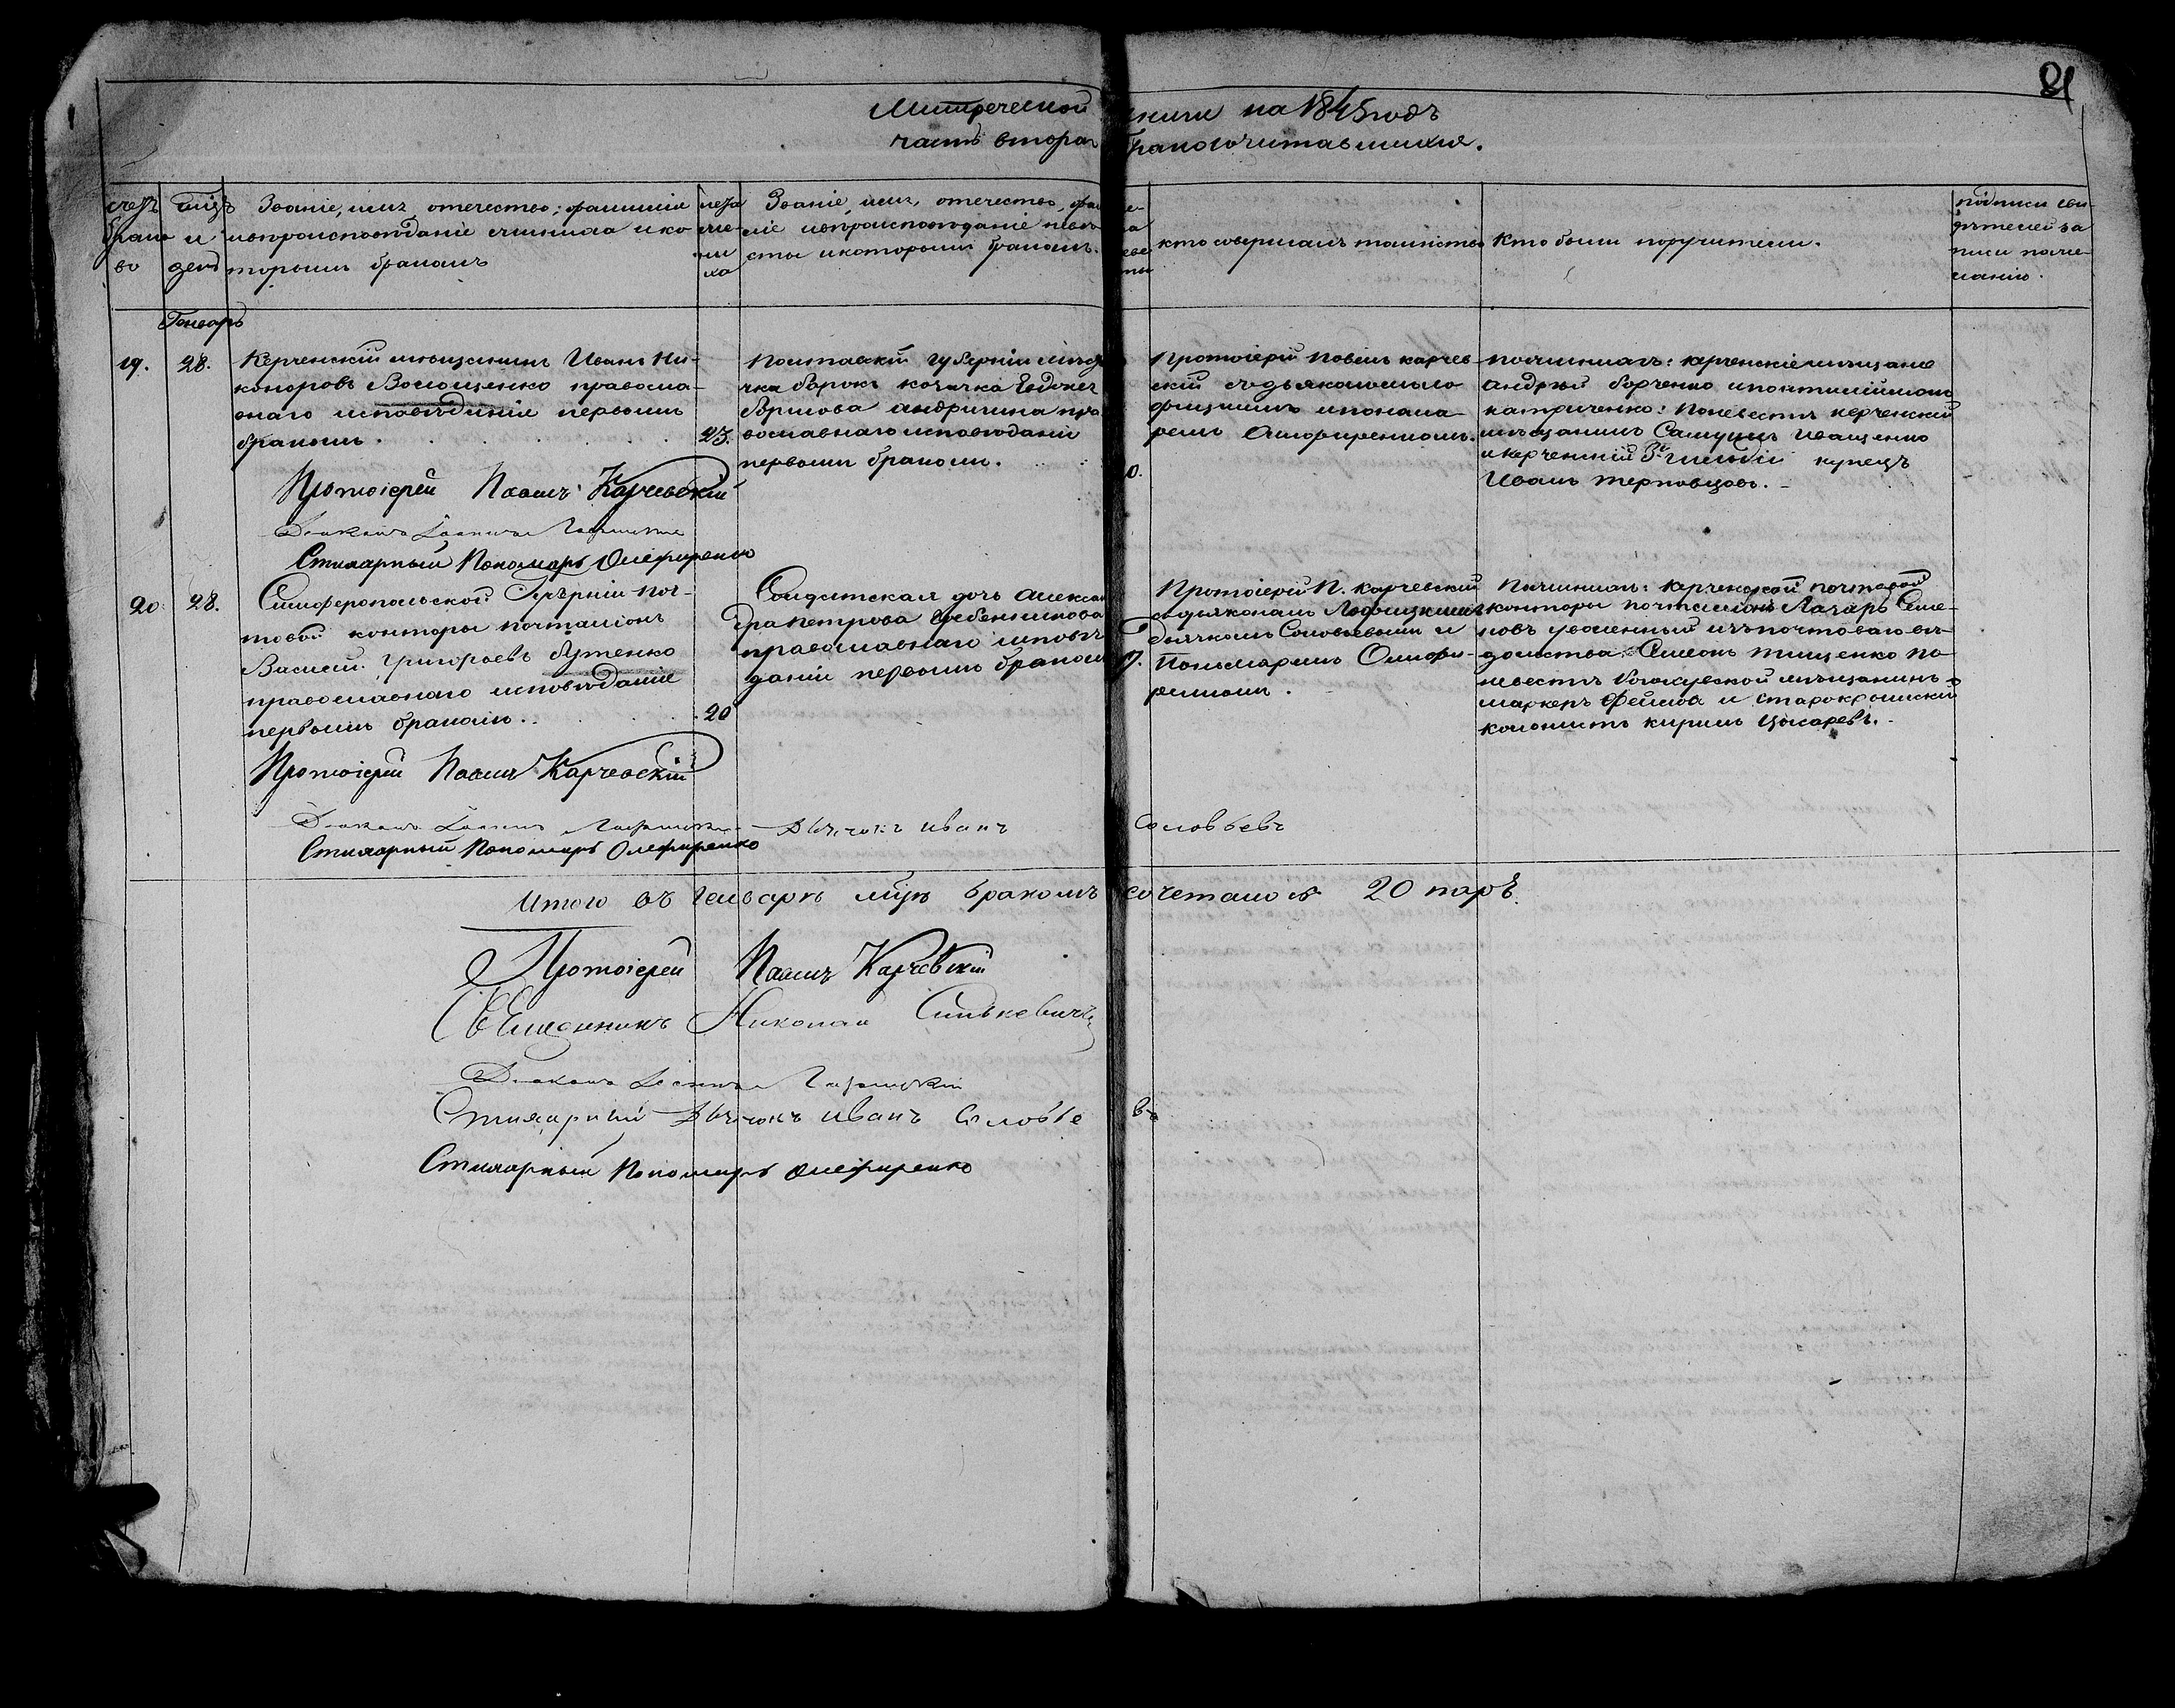 81
Митрической книги на 1845 годъ
часть вторая бракосочитавшихся.
счетъ браковъ
мцъ и день
Званіе, имя, отечество, фамилія
и вѣроисповѣданіе жениха и ко-
торымъ бракомъ
лета жениха
Званіе, имя, отечество, фами-
ліе и вѣроисповѣданіе невѣ-
сты и которымъ бракомъ.
кто совершалъ таинство
Кто были поручители.
подписи сви-
дѣтелей за
писи по же-
ланію.
Генварь
19.
28.
Керченскій мѣщанинъ Иванъ Ни-
коноровъ Волощенко правосла-
внаго исповѣданія первымъ
бракомъ.
23.
Полтавской губерніи мѣсте
чка Борокъ козачка Евдокея
православнаго исповѣданія
первымъ бракомъ.
Протоіерей Павелъ Карчев-
ский съ дьякономъ
и понома-
ремъ Олефиренкомъ.
По женихѣ: керченскіе мѣщане
Андрей Борченко
По невѣстѣ керченскій
мѣщанинъ Самуилъ Иващенко
и керченскій 3й гильдіи купецъ
Иванъ Терновцовъ.
Протоіерей Павелъ Карчевскій
Діаконъ Іоаннъ
Стихарный Пономарь Олефиренко
20
28.
Симферопольской Губерніи поч-
товой конторы почталіонъ
Василій Григорьевъ Бутенко
православнаго исповѣданія
первымъ бракомъ.
20
Солдатская дочь Алексан
дра Петрова Гребенникова
православнаго исповѣ
данія первымъ бракомъ
17.
Протоіерей П. Карчевский
съ дьякономъ
дьячкомъ Соловьевымъ и
Пономаремъ Олефи-
ренкомъ.
По женихѣ: Керченской почтовой
конторы почталіонъ Лазарь Семе-
новъ уволенный изъ почтоваго вѣ-
домства Семенъ Тищенко по
невестѣ мѣщанинъ
и старокрымскій
колонистъ Кирилъ Цысаревъ.
Протоіерей Павелъ Карчевскій
Діаконъ Іоаннъ
Дьячокъ Иванъ Соловьевъ
Стихарный Пономарь Олефиренко
Итого въ генварѣ мцѣ бракомъ сочеталось 20 паръ.
Протоіерей Павелъ Карчевскій
Священникъ Николай Синькевичъ
Діаконъ Іоаннъ
Стихарный Дьячокъ Иванъ Соловьевъ
Стихарный Пономарь Олефиренко